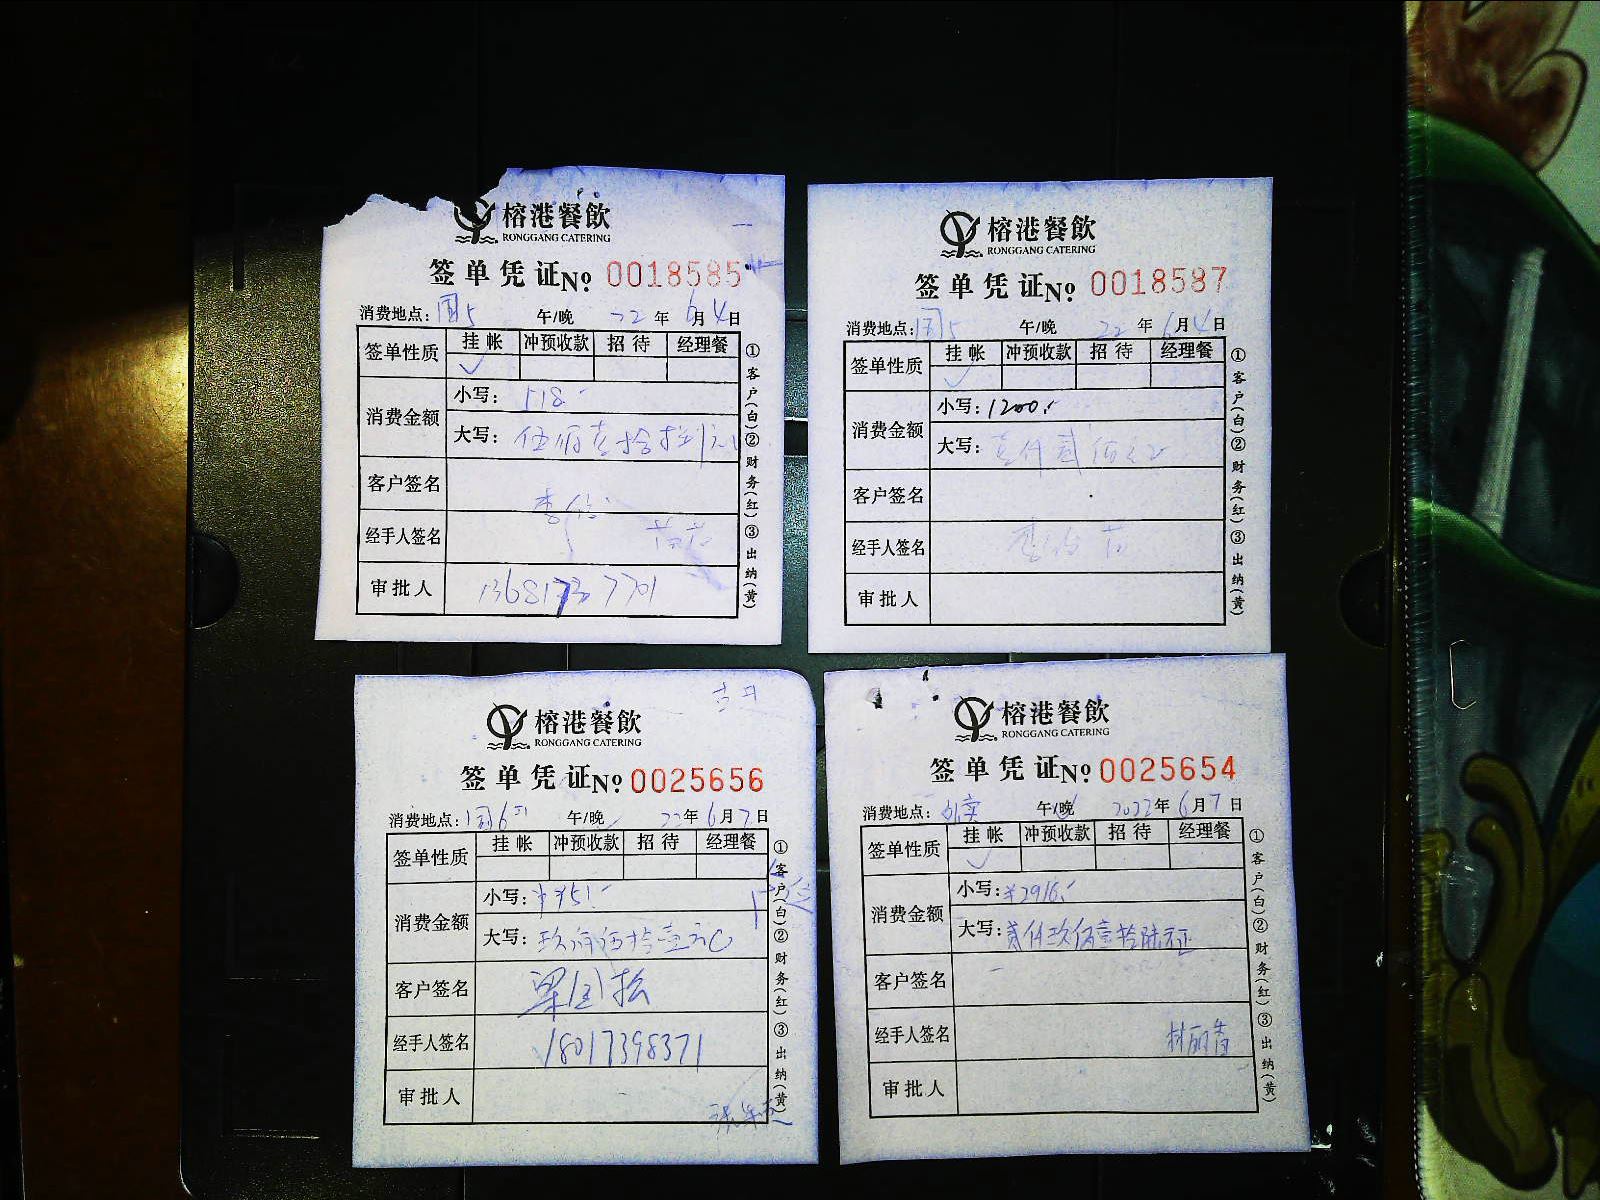 榕港餐飲
RONGGANG CATERING
签单凭证No 0018585
消费地点: 国5 午/晚 22年6月4日
签单性质 挂帐 冲预收款 招待 经理餐
✓
消费金额 小写: 518.-
大写: 伍佰壹拾捌元
客户签名
经手人签名
审批人 13681737701
①客户(白)②财务(红)③出纳(黄)
榕港餐飲
RONGGANG CATERING
签单凭证No 0018587
消费地点: 国5 午/晚 22年6月4日
签单性质 挂帐 冲预收款 招待 经理餐
✓
消费金额 小写: 1200.-
大写: 壹仟贰佰元
客户签名
经手人签名
审批人
①客户(白)②财务(红)③出纳(黄)
榕港餐飲
RONGGANG CATERING
签单凭证No 0025656
消费地点: 国6 午/晚 22年6月7日
签单性质 挂帐 冲预收款 招待 经理餐
消费金额 小写: ¥951.-
大写: 玖佰伍拾壹元
客户签名 梁国松
经手人签名 18017398371
审批人
①客户(白)②财务(红)③出纳(黄)
榕港餐飲
RONGGANG CATERING
签单凭证No 0025654
消费地点: 外卖 午/晚 2022年6月7日
签单性质 挂帐 冲预收款 招待 经理餐
✓
消费金额 小写: ¥2916.-
大写: 贰仟玖佰壹拾陆元正
客户签名
经手人签名 林丽青
审批人
①客户(白)②财务(红)③出纳(黄)